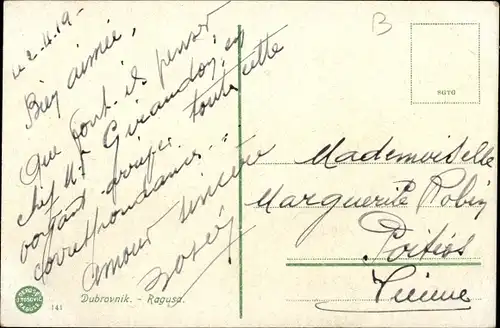 Le 2.4.19 -
Bien aimée,
Que font-ils penser
chez Mr Girandon, en
voyant arriver toute cette
correspondance. -
amour sincère
B
SGTG
Mademoiselle
Marguerite Robin
Poitiers
Vienne
Dubrovnik. - Ragusa.
141